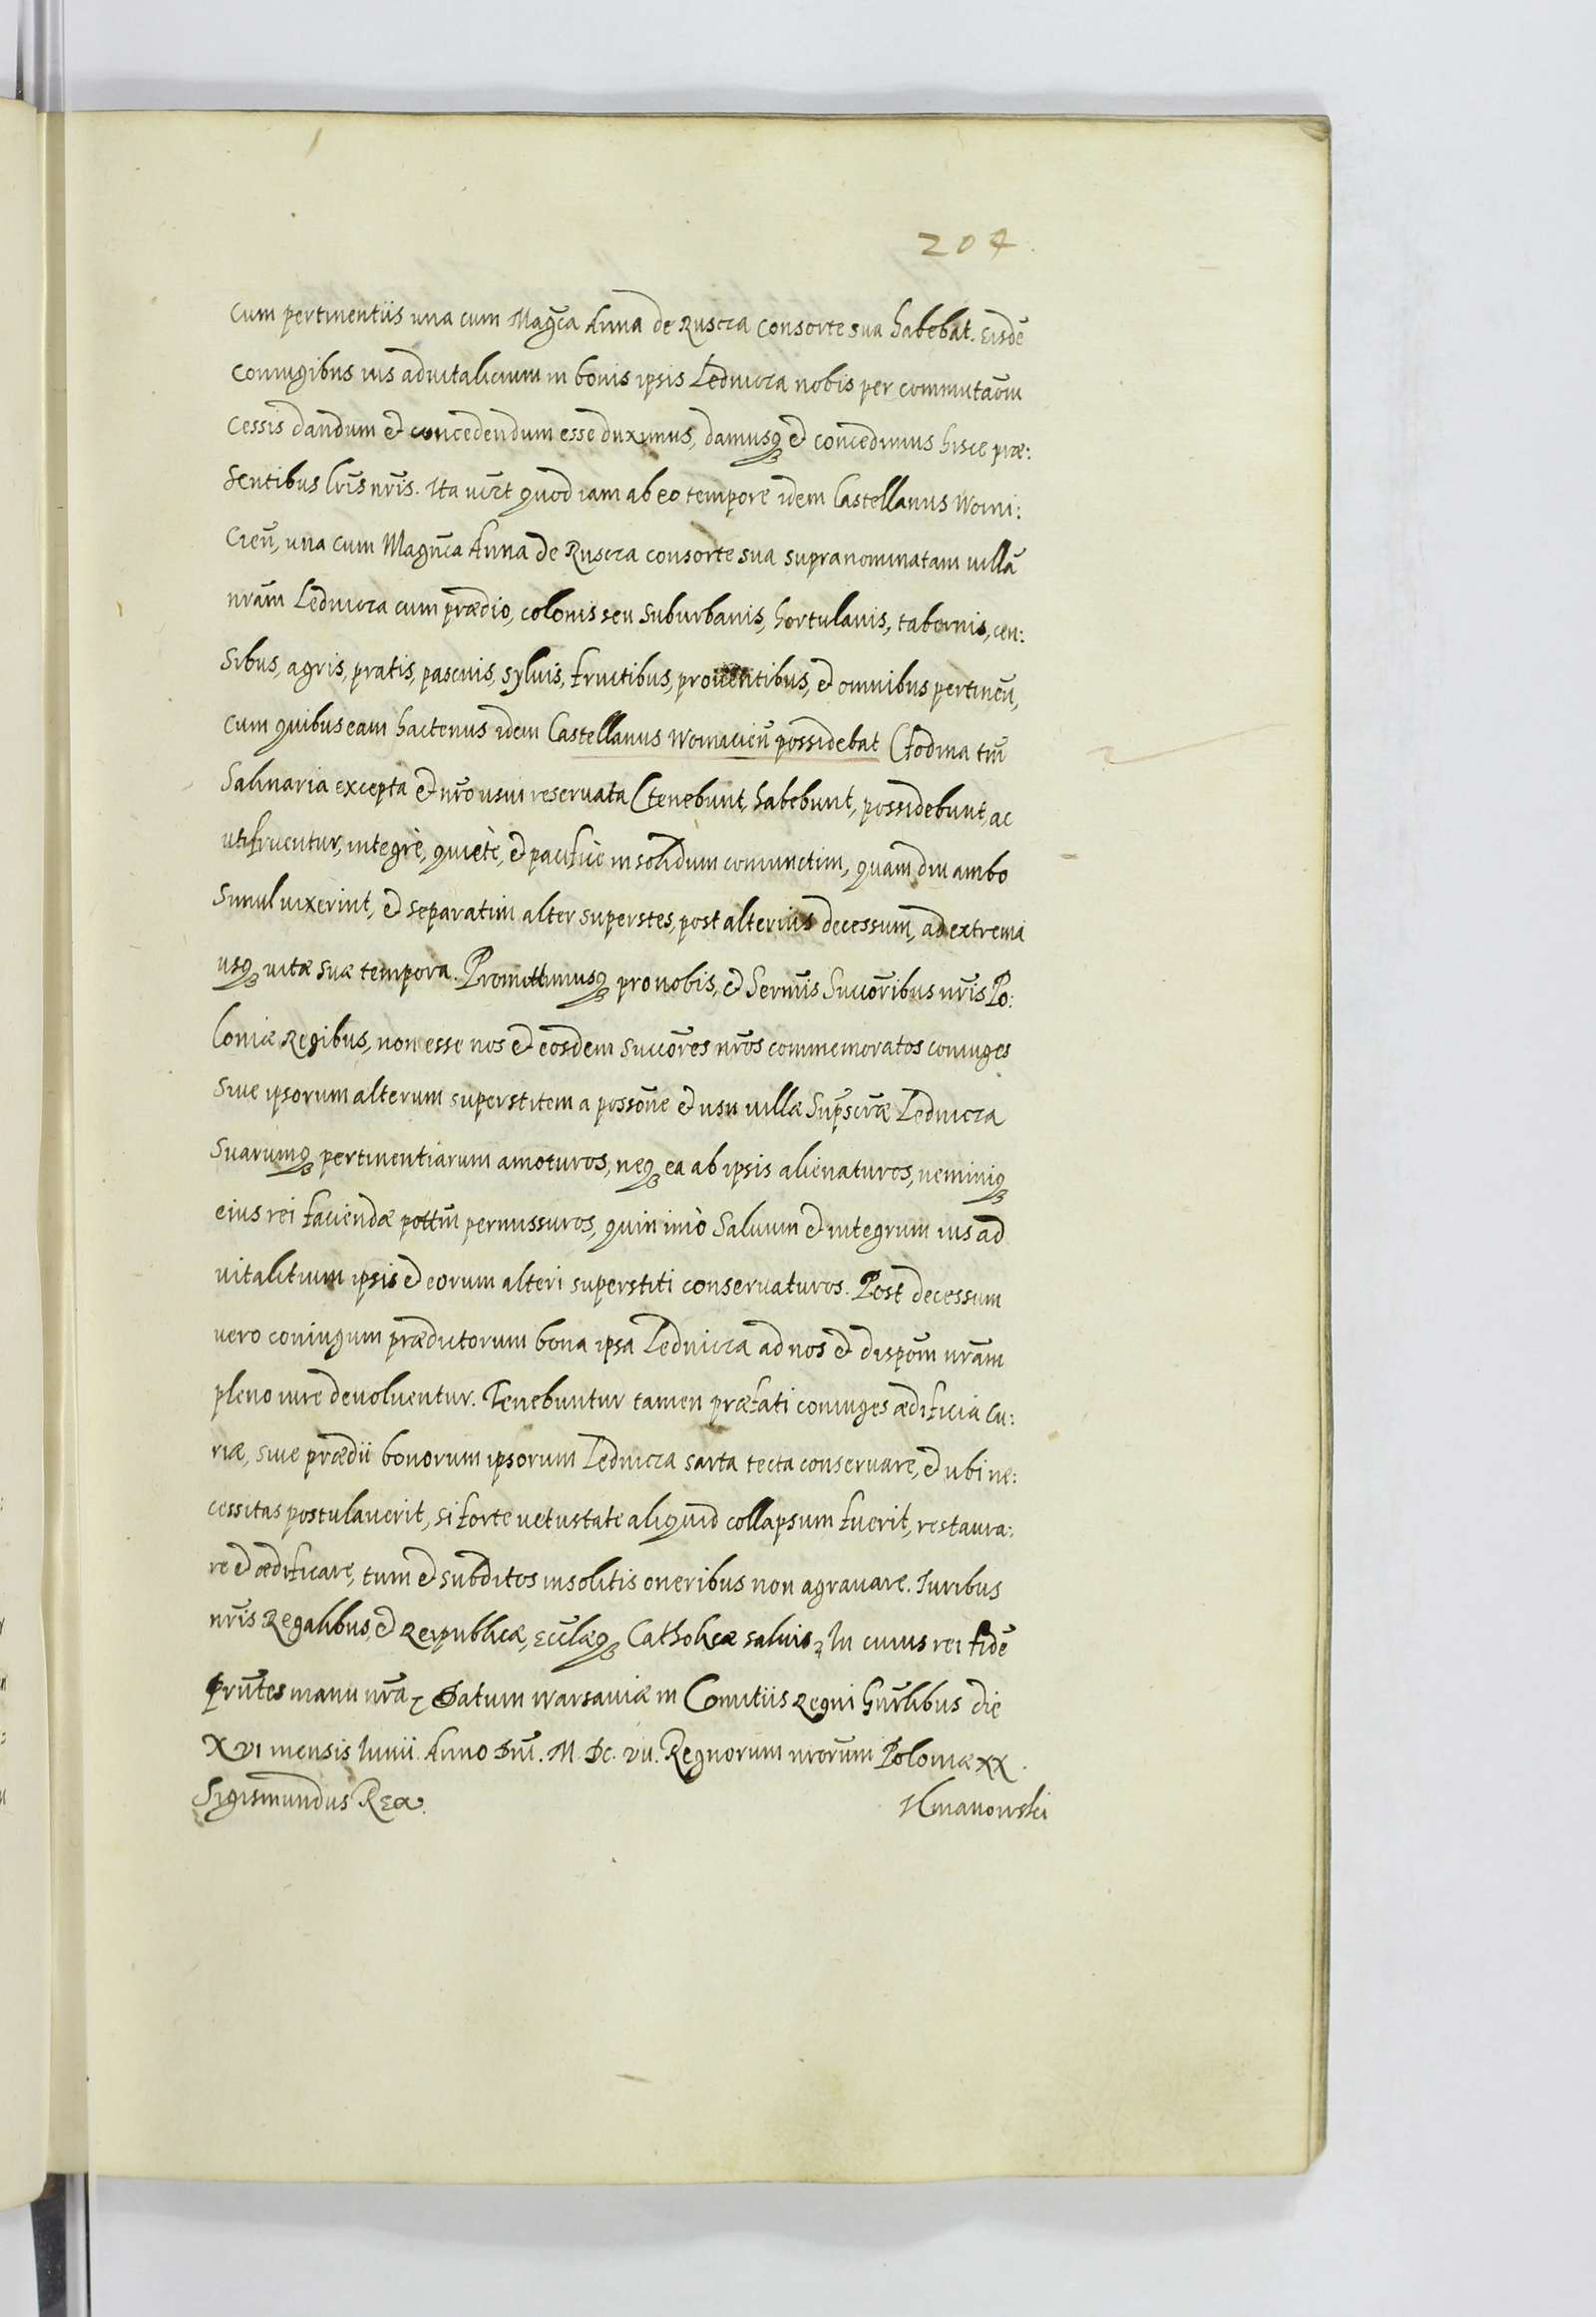 204.
cum pertinentiis una cum Mag̃ca Anna de Ruscza consorte sua habebat. Eisdẽ
coniugibus ius advitalicium in bonis ipsis Lednicza nobis per commutaõm
cessis dandum et concedendum esse duximus, damusq et concedimus hisce præ:
sentibus lr̃is nr̃is. Ita vi͠rt quod iam ab eo tempore idem Castellanus Woini:
cien̄, una cum Magn̄ca Anna de Ruscza consorte sua supranominatam villã
nr̃am Lednicza cum prædio, colonis seu suburbanis, hortulanis, tabernis, cen:
sibus, agris, pratis, pascuis, sylvis, fructibus, proventibus, et omnibus pertinen̄,
cum quibus eam hactenus idem Castellanus Woinicien̄ possidebat (fodina tm̄
Salinaria excepta et nr̃o usui reservata (tenebunt, habebunt, possidebunt, ac
utifruentur, integrè, quietè, et pacificè in solidum coniunctim, quam diu ambo
simul vixerint, et separatim alter superstes, post alterius decessum, ad extrema
usq vitæ suæ tempora. Promittimusq pro nobis, et Serm̄is Succõribus nr̃is Po:
loniæ Regibus, non esse nos et eosdem succõres nr̃os commemoratos coniuges
sive ipsorum alterum superstitem a possõne et usu villæ sup̃scr̃æ Lednicza
suarumq pertinentiarum amoturos, neq ea ab ipsis alienaturos, neminiq
eius rei faciendæ pottm̄ permissuros, quin imò salvum et integrum ius ad
vitalitium ipsis et eorum alteri superstiti conservaturos. Post decessum
vero coniugum prædictorum bona ipsa Lednicza ad nos et dispõm nr̃am
pleno iure devoluentur. Tenebuntur tamen præfati coniuges ædificia cu:
riæ, sive prædii bonorum ipsorum Lednicza sarta tecta conservare, et ubi ne:
cessitas postulaverit, si forte vetustate aliquid collapsum fuerit, restaura:
re et ædificare, tum et subditos insolitis oneribus non agravare. Iuribus
nr̃is Regalibus, et Reipublicæ, Eccl̃æq Catholicæ salvis. In cuius rei fidẽ
pr̃ntes manu nr̃a. Datum Warsaviæ in Comitiis Regni Gñrlibus die
XVI mensis Iunii. Anno Dn̄i. M. DC. VII. Regnorum nrorum̃ Poloniæ XX.
Sigismundus Rex. Ilmanowski